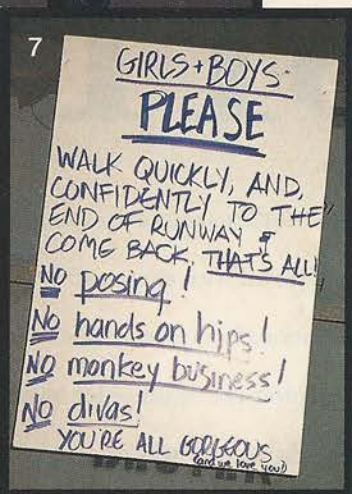 7
GIRLS + BOYS
PLEASE
WALK QUICKLY, AND,
CONFIDENTLY TO THE
END OF RUNWAY &
COME BACK. THAT'S ALL!
NO posing!
NO hands on hips!
NO monkey business!
NO divas!
YOU'RE ALL GORGEOUS
(and we love you!)